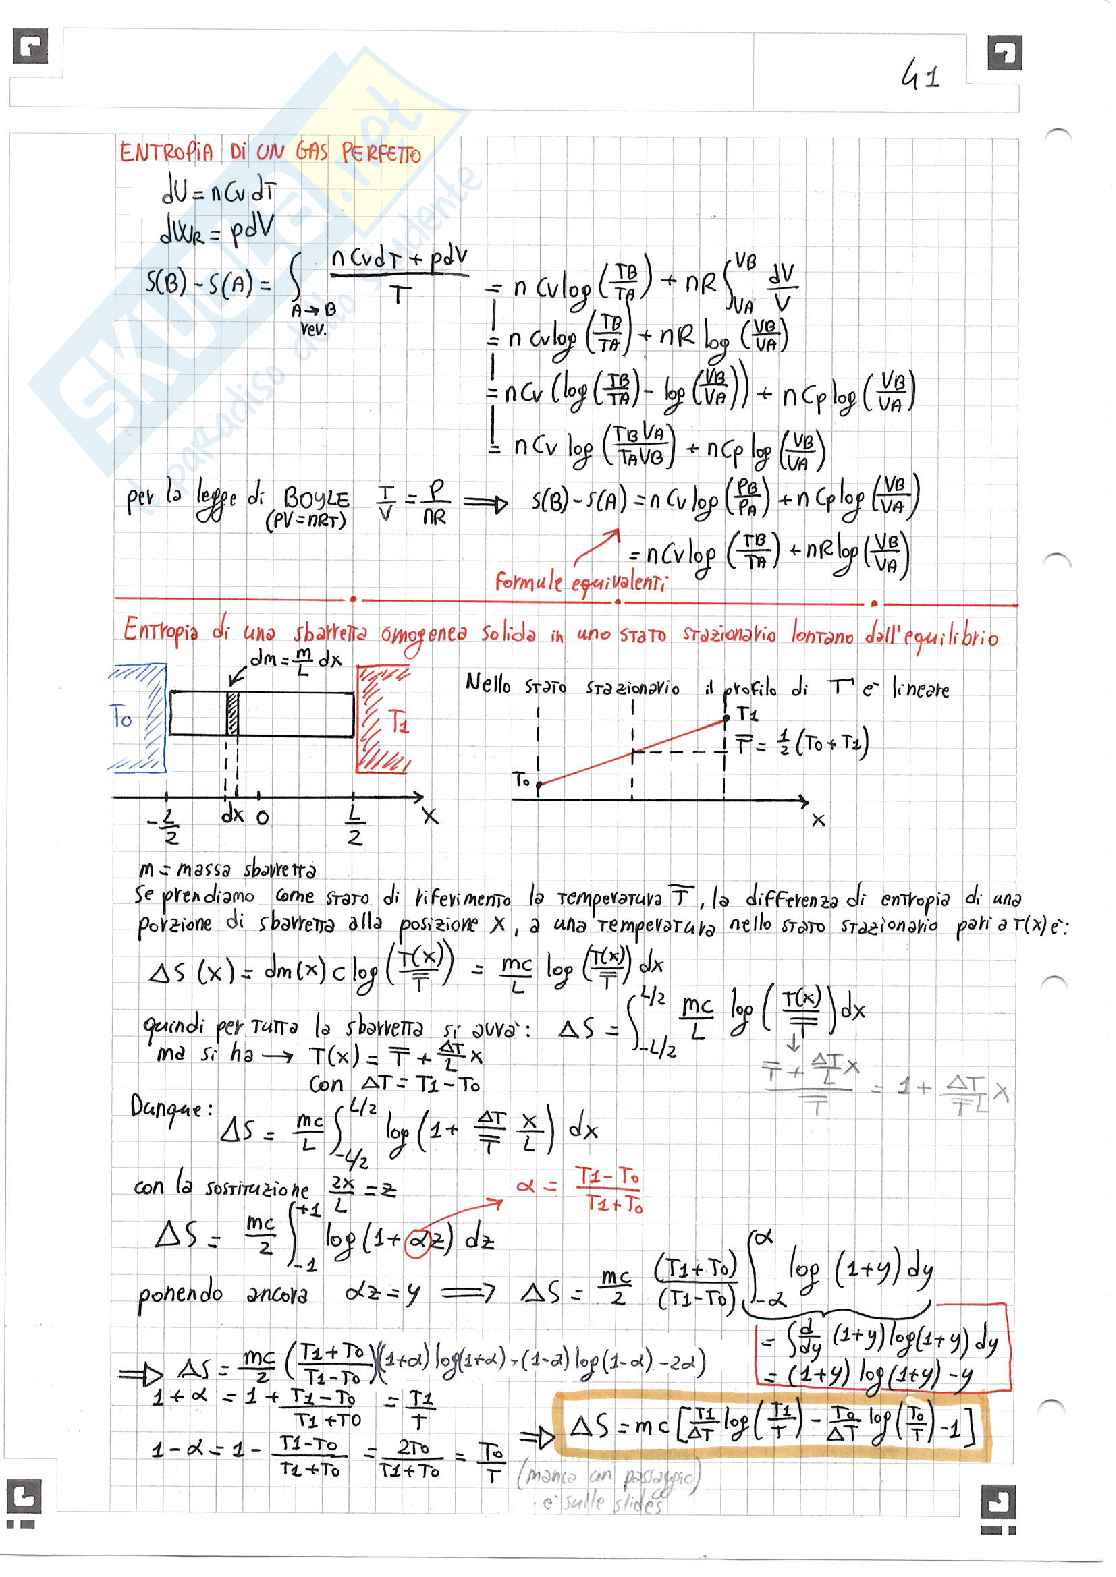 41
ENTROPIA DI UN GAS PERFETTO
dU = nCv dT
dWR = pdV
S(B) - S(A) = ∫A→B rev. (nCvdT + pdV)/T = nCvlog(TB/TA) + nR∫VA^VB dV/V
= nCvlog(TB/TA) + nR log(VB/VA)
= nCv(log(TB/TA) - log(VB/VA)) + nCplog(VB/VA)
= nCv log(TBVA/TAVB) + nCp log(VB/VA)
per la legge di BOYLE (PV=nRT) T/V = P/nR ⟹ S(B)-S(A) = nCvlog(PB/PA) + nCplog(VB/VA)
= nCvlog(TB/TA) + nRlog(VB/VA)
Formule equivalenti
Entropia di una sbarretta omogenea solida in uno stato stazionario lontano dall'equilibrio
dm = m/L dx
Nello stato stazionario il profilo di T è lineare
T0
T1
T1
T̄ = 1/2 (T0+T1)
T0
-L/2 dx 0 L/2 x
x
m = massa sbarretta
Se prendiamo come stato di riferimento la temperatura T̄, la differenza di entropia di una
porzione di sbarretta alla posizione x, a una temperatura nello stato stazionario pari a T(x) è:
ΔS(x) = dm(x) c log(T(x)/T̄) = mc/L log(T(x)/T̄) dx
quindi per tutta la sbarretta si avrà: ΔS = ∫-L/2^L/2 mc/L log(T(x)/T̄) dx
ma si ha → T(x) = T̄ + ΔT/L x
(T̄ + ΔT/L x)/T̄ = 1 + ΔT/T̄L x
con ΔT = T1-T0
Dunque:
ΔS = mc/L ∫-L/2^L/2 log(1 + ΔT/T̄ x/L) dx
con la sostituzione 2x/L = z
α = (T1-T0)/(T1+T0)
ΔS = mc/2 ∫-1^+1 log(1+αz) dz
ponendo ancora αz = y ⟹ ΔS = mc/2 (T1+T0)/(T1-T0) ∫-α^α log(1+y) dy
= ∫ d/dy (1+y) log(1+y) dy
= (1+y) log(1+y) - y
⟹ ΔS = mc/2 ((T1+T0)/(T1-T0)) ((1+α) log(1+α) - (1-α) log(1-α) - 2α)
1+α = 1 + (T1-T0)/(T1+T0) = T1/T̄
⟹ ΔS = mc [T1/ΔT log(T1/T̄) - T0/ΔT log(T0/T̄) - 1]
1-α = 1 - (T1-T0)/(T1+T0) = 2T0/(T1+T0) = T0/T̄
(manca un passaggio)
è sulle slides
SKUOLA.net
il paradiso dello studente